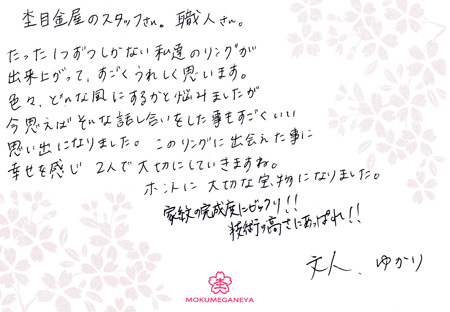 杢目金屋のスタッフさん。職人さん。
たった1つずつしかない私達のリングが
出来上がって、すごくうれしく思います。
色々、どんな風にするかと悩みましたが
今思えばそんな話し合いをした事もすごくいい
思い出になりました。このリングに出会えた事に
幸せを感じ 2人で大切にしていきますね。
ホントに大切な宝物になりました。
家紋の完成度にビックリ!!
技術の高さにあっぱれ!!
文人、ゆかり
MOKUMEGANEYA